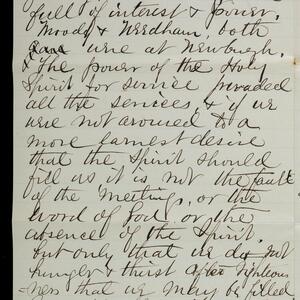 full of interest & power.
Moody & Needham, both
were at Newburgh.
& the power of the Holy
Spirit for service pervaded
all the services, & if we
were not aroused to a
more earnest desire
that the Spirit should
fill us it is not the fault
of the Meetings, or the
word of God, or the
absence of the Spirit.
but only that we do not
hunger & thirst after righteous
-ness that we may be filled